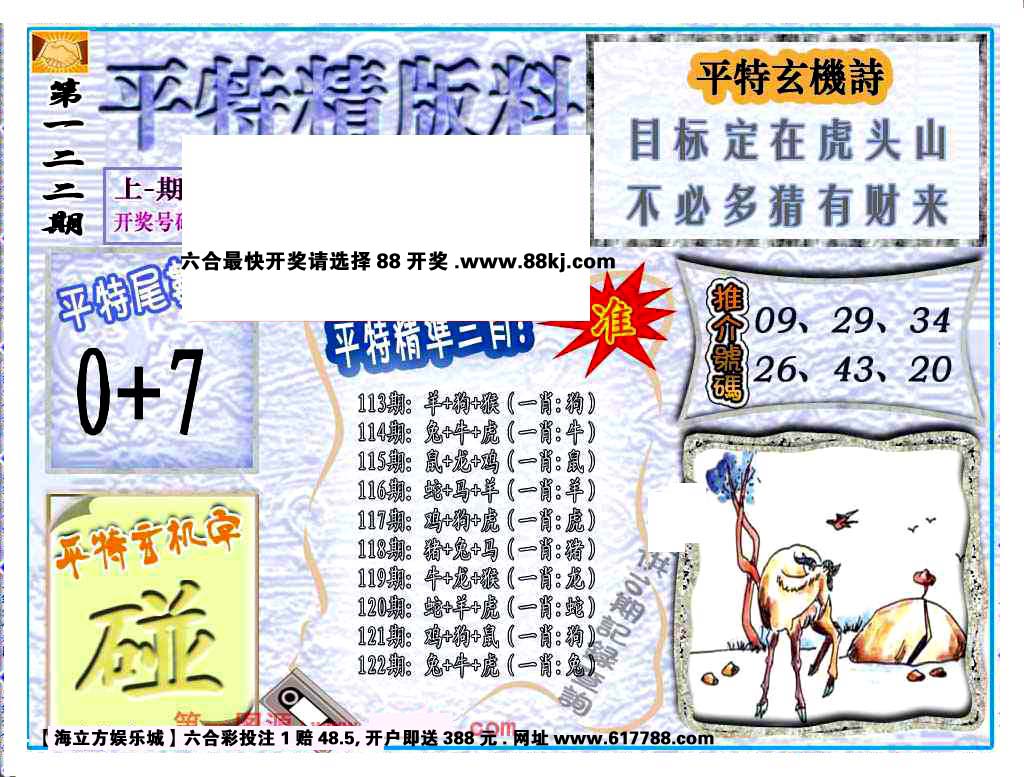 第一二二期
平特精版料
上-期
开奖号码
平特玄機詩
目标定在虎头山
不必多猜有财来
六合最快开奖请选择 88 开奖 .www.88kj.com
平特尾数
0+7
平特精準三肖!
准
推介號碼
09、29、34
26、43、20
113期: 羊+狗+猴 (一肖:狗)
114期: 兔+牛+虎 (一肖:牛)
115期: 鼠+龙+鸡 (一肖:鼠)
116期: 蛇+马+羊 (一肖:羊)
117期: 鸡+狗+虎 (一肖:虎)
118期: 猪+兔+马 (一肖:猪)
119期: 牛+龙+猴 (一肖:龙)
120期: 蛇+羊+虎 (一肖:蛇)
121期: 鸡+狗+鼠 (一肖:狗)
122期: 兔+牛+虎 (一肖:兔)
平特玄机字
碰
期記錄查詢
.com
【海立方娱乐城】六合彩投注 1 赔 48.5, 开户即送 388 元 . 网址 www.617788.com